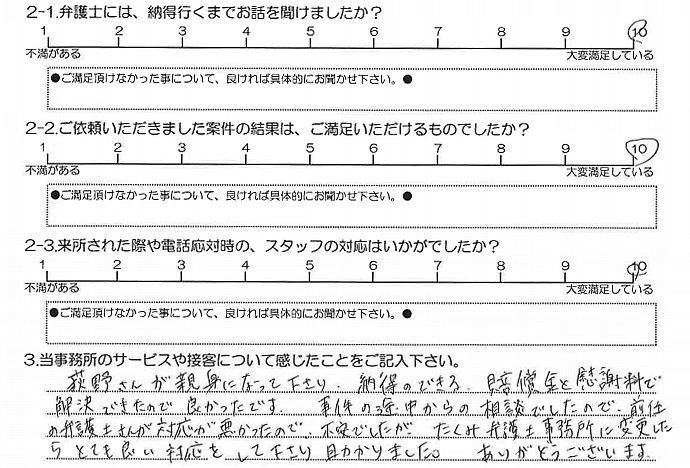 2-1.弁護士には、納得行くまでお話を聞けましたか？
1 2 3 4 5 6 7 8 9 10
不満がある 大変満足している
●ご満足頂けなかった事について、良ければ具体的にお聞かせ下さい。●
2-2.ご依頼いただきました案件の結果は、ご満足いただけるものでしたか？
1 2 3 4 5 6 7 8 9 10
不満がある 大変満足している
●ご満足頂けなかった事について、良ければ具体的にお聞かせ下さい。●
2-3.来所された際や電話応対時の、スタッフの対応はいかがでしたか？
1 2 3 4 5 6 7 8 9 10
不満がある 大変満足している
●ご満足頂けなかった事について、良ければ具体的にお聞かせ下さい。●
3.当事務所のサービスや接客について感じたことをご記入下さい。
荻野さんが親身になって下さり、納得のできる、賠償金と慰謝料で
解決できたので良かったです。事件の途中からの相談でしたので、前任
の弁護士さんが対応が悪かったので、不安でしたが、たくみ弁護士事務所に変更した
らとても良い対応をして下さり助かりました。ありがとうございます。